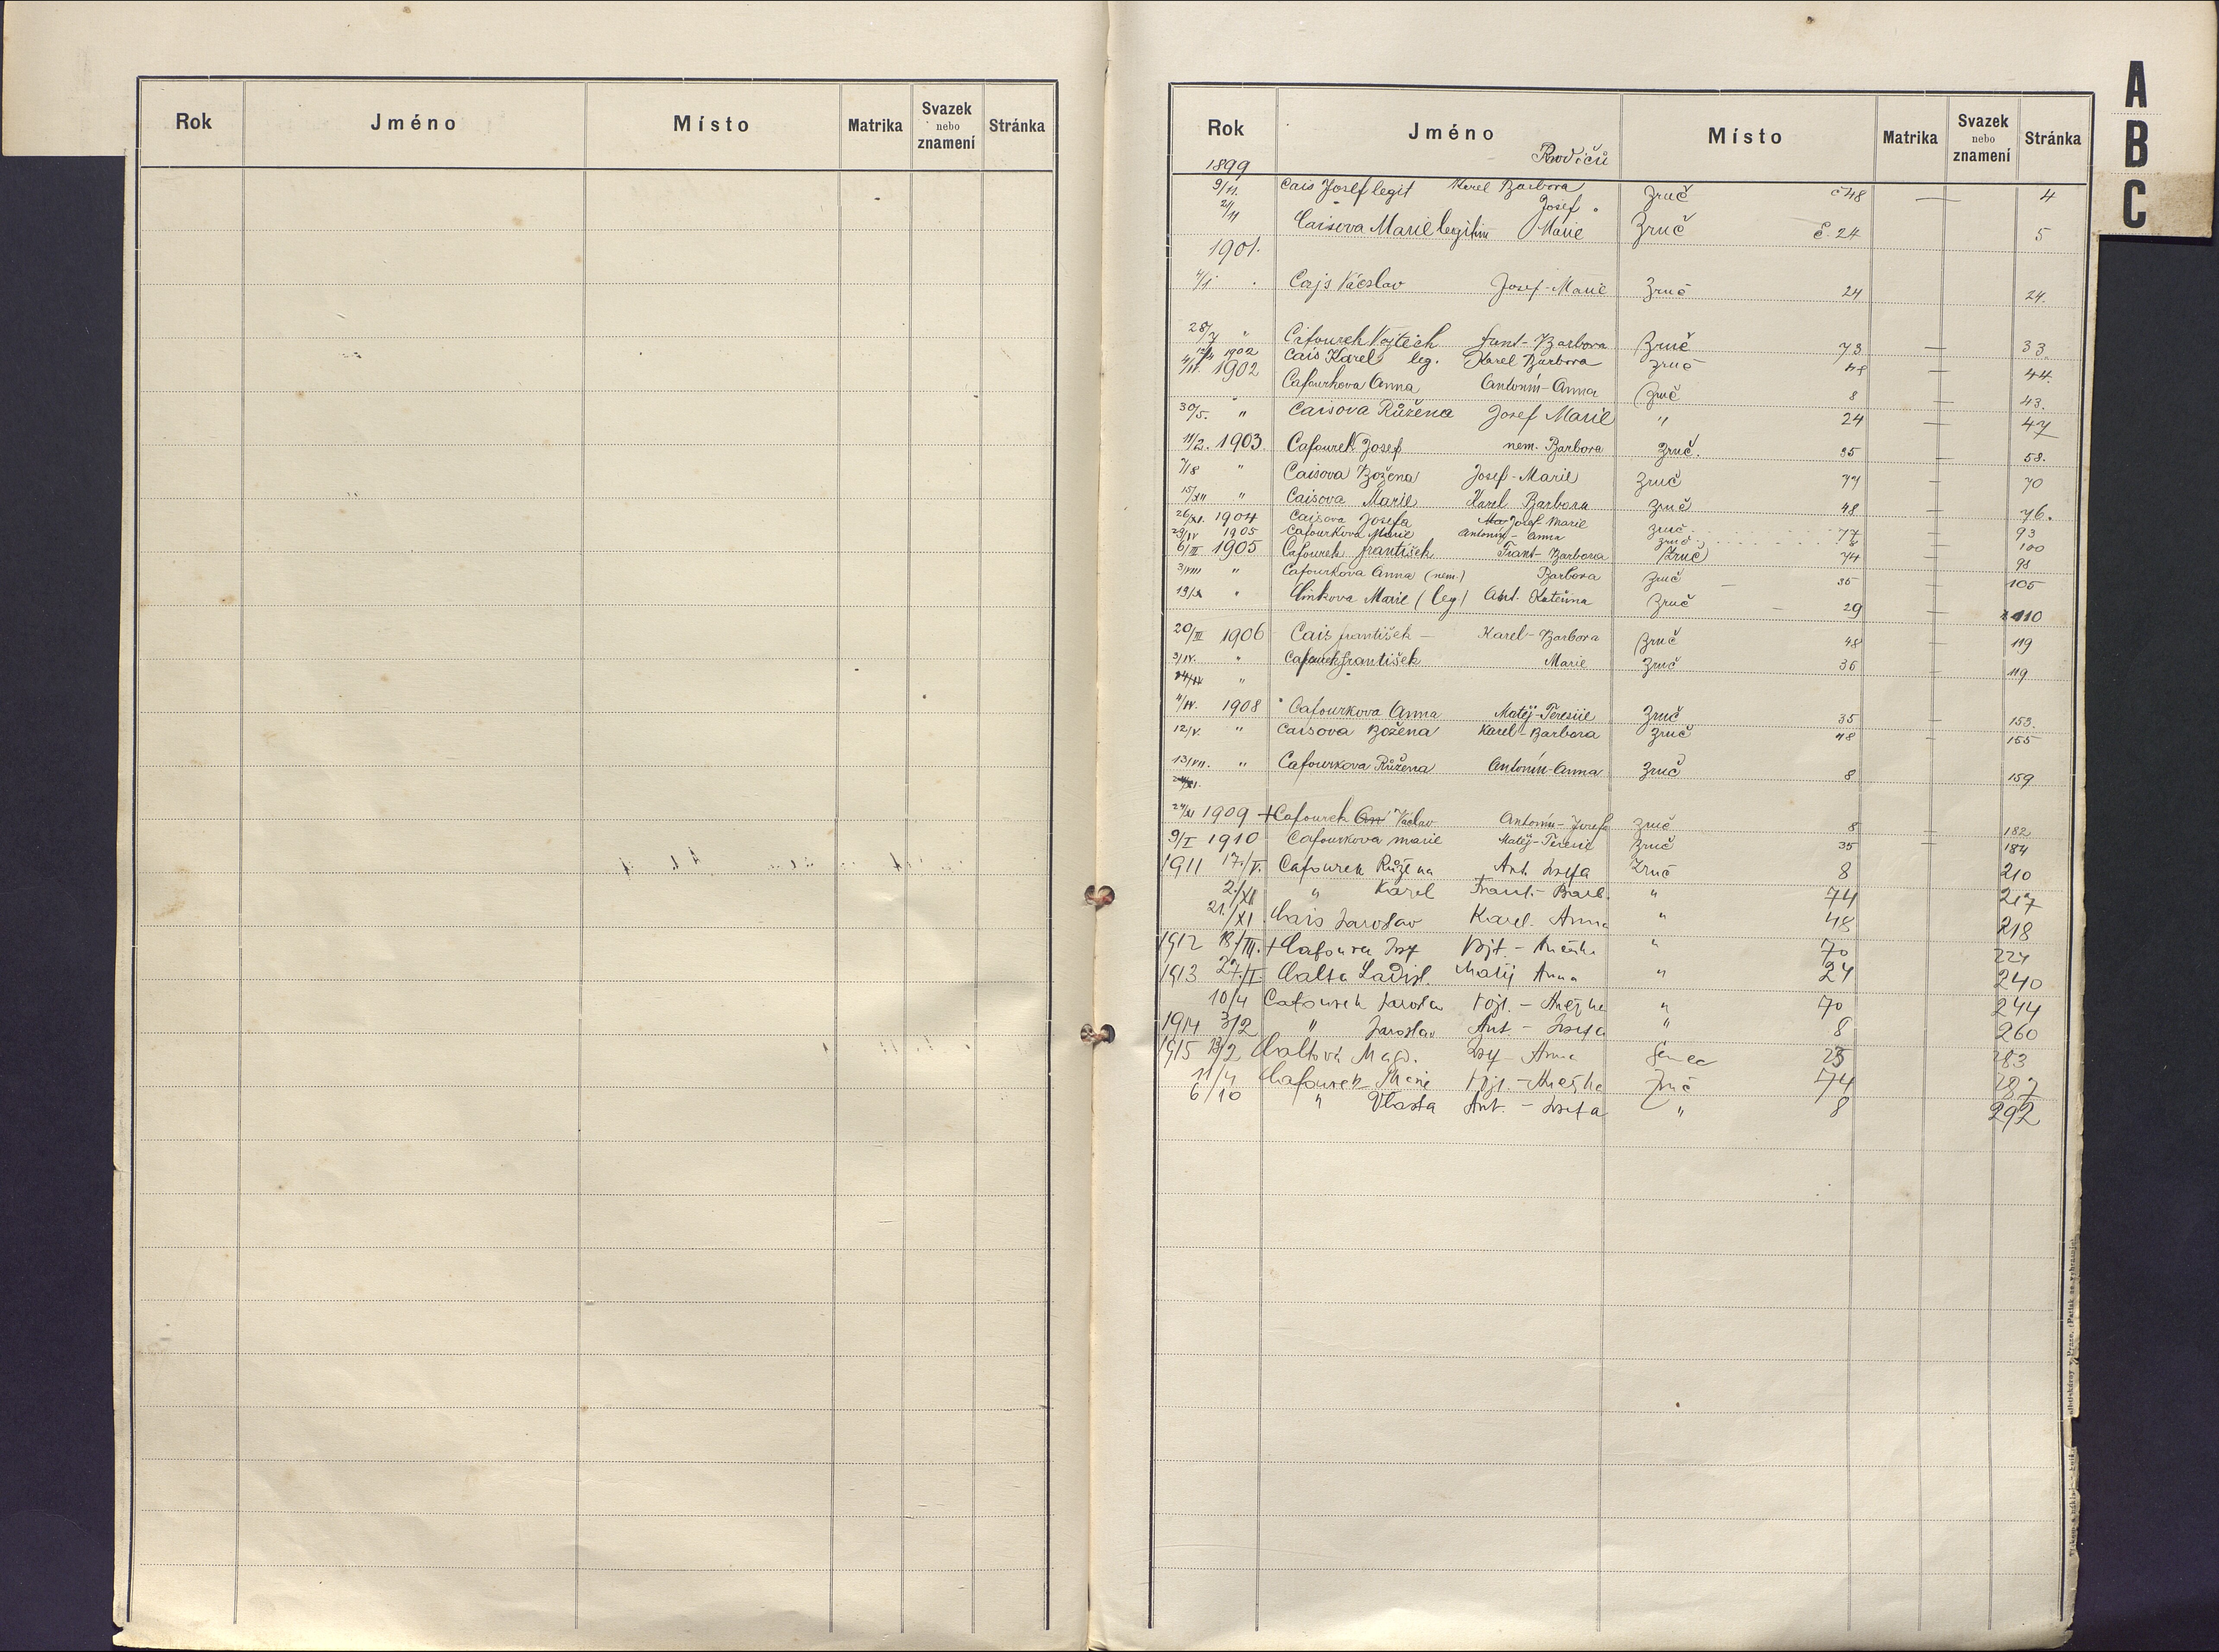 Rok Jméno Místo Matrika Svazek nebo znamení Stránka
A
B
C
Rok Jméno Rodičů Místo Matrika Svazek nebo znamení Stránka
1899
9/11. Cais Josef legit Karel Barbora Zruč č 48 — 4
2/11 Caisova Marie legitim Josef Marie Zruč č. 24 5
1901.
4/1 Cajs Václav Josef-Marie Zruč 24 24.
28/7 " Cifourek Vojtěch Frant-Barbora Zruč 73 — 33.
1902 Cais Karel leg. Karel Barbora Zruč 48 — 44.
4/IV. 1902 Cafourkova Anna Antonín-Anna Zruč 8 — 43.
30/5. " Caisova Růžena Josef Marie " 24 — 47
11/2. 1903. Cafourek Josef nem. Barbora Zruč. 35 — 58.
7/8 " Caisova Božena Josef-Marie Zruč 77 — 70
15/XII " Caisova Marie Karel Barbora Zruč 48 — 76.
26/XI. 1904 Caisova Josefa Josef Marie Zruč 77 — 93
29/IV 1905 Cafourkova Marie Antonín-Anna Zruč 8 — 100
6/III 1905 Cafourek František Frant-Barbora Zruč 74 — 98
3/VIII " Cafourkova Anna (nem.) Barbora Zruč — 35 — 105
19/X " Marie (leg) Ant. Kateřina Zruč — 29 — 110
20/III 1906 Cais František — Karel-Barbora Zruč 48 — 119
3/IV. " Cafourek František Marie Zruč 36 — 119
"
4/IV. 1908 Cafourkova Anna Matěj-Teresie Zruč 35 — 153.
12/V. " Caisova Božena Karel-Barbora Zruč 48 — 155
13/VII. " Cafourkova Růžena Antonín-Anna Zruč 8 159
24/XI 1909 +Cafourek An Václav Antonín-Josefa Zruč 8 — 182
9/I 1910 Cafourkova Marie Matěj-Teresie Zruč 35 — 184
1911 17./V. Cafourek Růžena Ant. Josefa Zruč 8 210
2./XI " Karel Frant.-Barb. " 74 217
21./XI Cais Jaroslav Karel. Anna " 48 218
1912 18/III. + Josf Vojt.- Anežka " 70 224
1913 27./I. Calta Ladisl. Matěj Anna " 24 240
10/4 Cafourek Jarosla Vojt.-Anežka " 70 244
1914 3/2 " Jaroslav Ant.-Josefa " 8 260
1915 13/2 Caltová Magd. Josf-Anna Senec 25 283
11/4 Cafourek Marie Vojt.-Anežka Zruč 74 287
6/10 " Vlasta Ant.-Josefa " 8 292